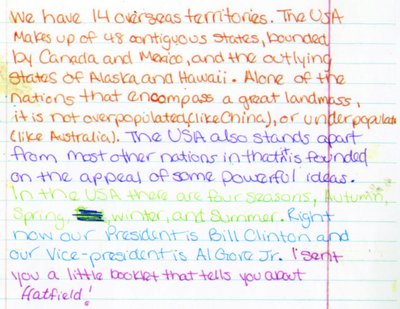 We have 14 overseas territories. The USA
Makes up of 48 contiguous states, bounded
by Canada and Mexico, and the outlying
states of Alaska and Hawaii. Alone of the
nations that encompass a great landmass,
it is not overpopulated (like China), or underpopulate
(like Australia). The USA also stands apart
from most other nations in that it is founded
on the appeal of some powerful ideas.
In the USA there are four seasons, Autumn,
Spring, winter, and Summer. Right
now our President is Bill Clinton and
our Vice-president is Al Gore Jr. I sent
you a little booklet that tells you about
Hatfield!